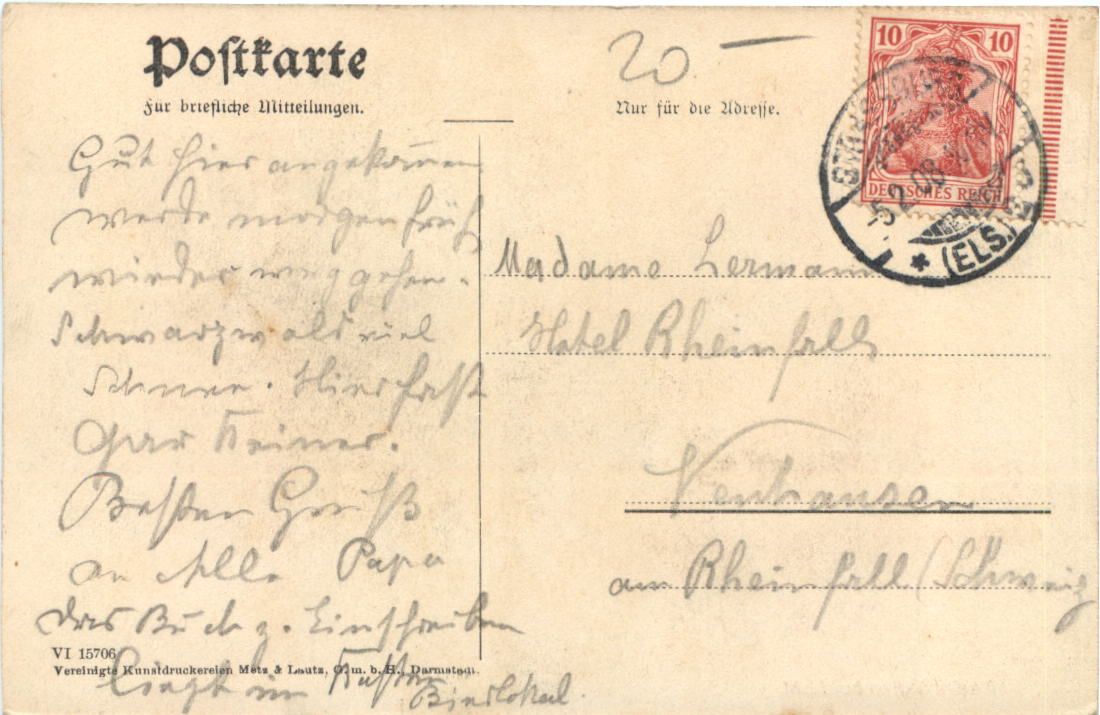 Postkarte
Für briefliche Mitteilungen.
Nur für die Adresse.
20 —
10 10
DEUTSCHES REICH
STRASSBURG
5.2.08
* (ELS.)
Gut hier angekommen
werde morgen früh
wieder weggehen.
Schwarzwald viel
Schnee. Hier fast
gar keiner.
Besten Gruß
an Alle Papa
das Buch z. Einschreiben
liegt im Kasten
Bierlokal.
Madame Lermann
Hotel Rheinfall
Neuhausen
am Rheinfall (Schweiz
VI 15706
Vereinigte Kunstdruckereien Metz & Lautz, G. m. b. H., Darmstadt.